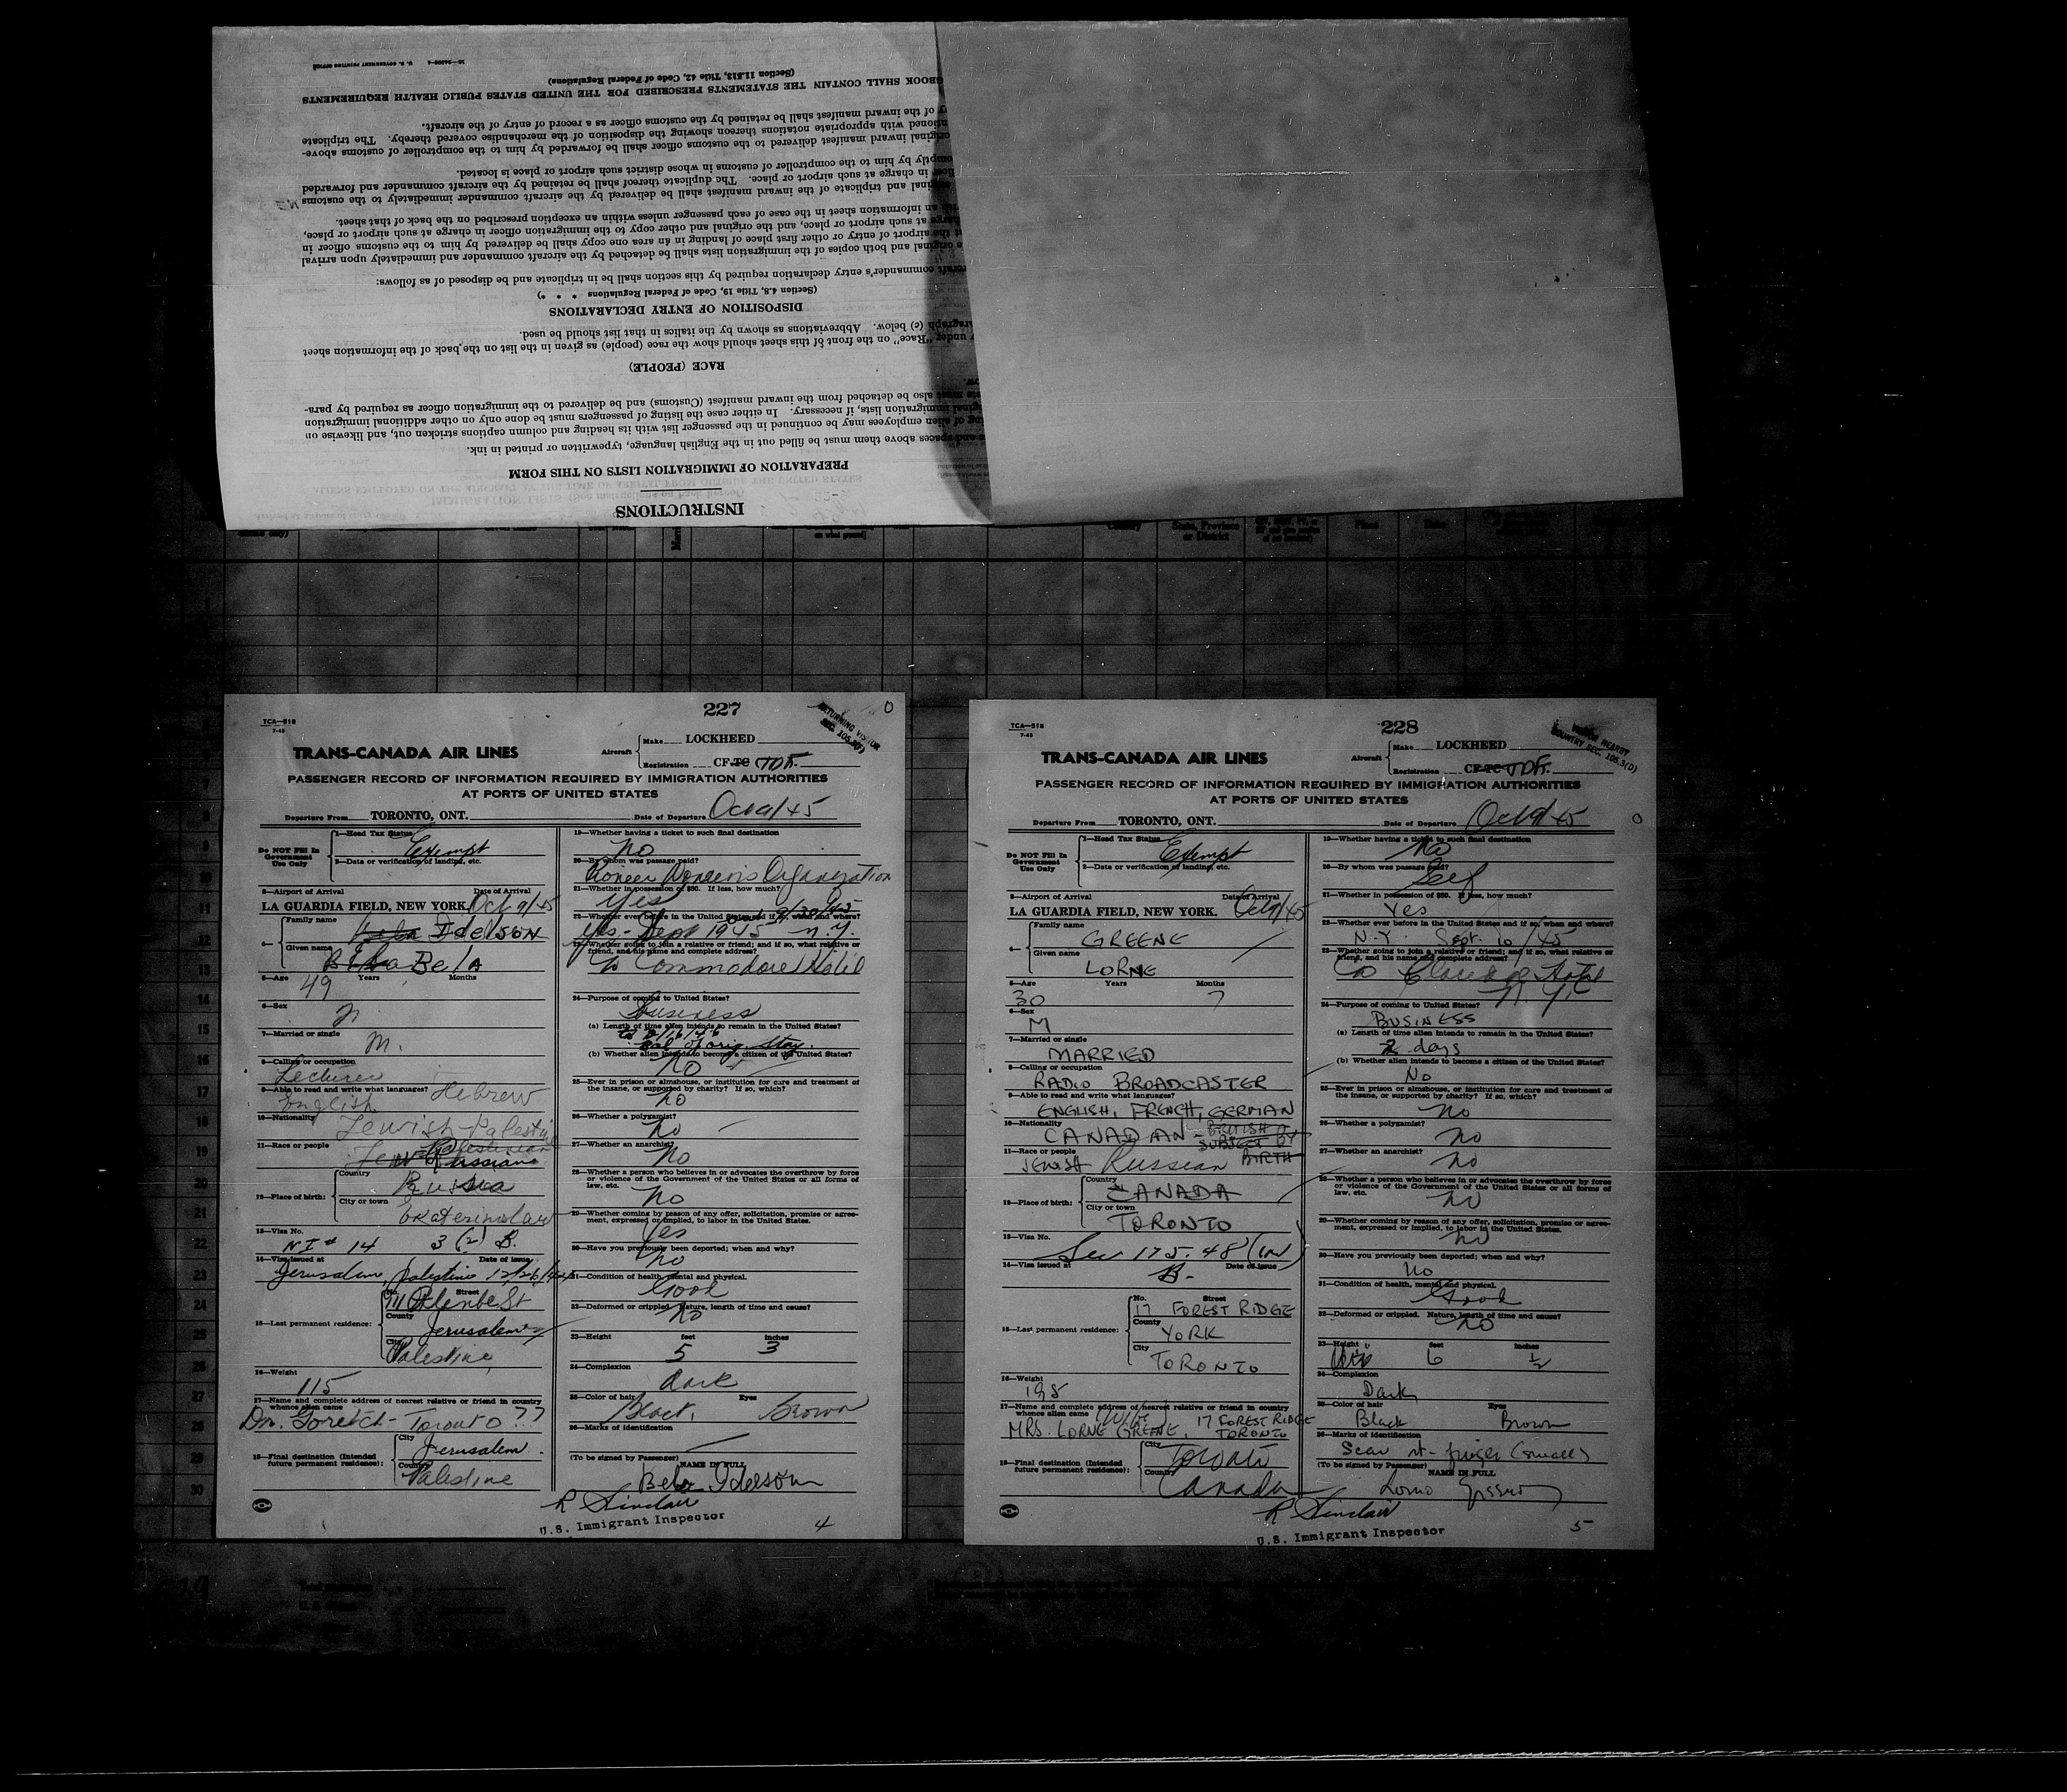 INSTRUCTIONS
PREPARATION OF IMMIGRATION LISTS ON THIS FORM
and spaces above them must be filled out in the English language, typewritten or printed in ink.
of alien employees may be continued in the passenger list with its heading and column captions stricken out, and likewise on
immigration lists, if necessary. In either case the listing of passengers must be done only on other additional immigration
must also be detached from the inward manifest (Customs) and be delivered to the immigration officer as required by para-
RACE (PEOPLE)
under "Race" on the front of this sheet should show the race (people) as given in the list on the back of the information sheet
(c) below. Abbreviations as shown by the italics in that list should be used.
DISPOSITION OF ENTRY DECLARATIONS
(Section 4.8, Title 19, Code of Federal Regulations * * *)
commander's entry declaration required by this section shall be in triplicate and be disposed of as follows:
original and both copies of the immigration lists shall be detached by the aircraft commander and immediately upon arrival
at the airport of entry or other first place of landing in an area one copy shall be delivered by him to the customs officer in
at such airport or place, and the original and other copy to the immigration officer in charge at such airport or place,
an information sheet in the case of each passenger unless within an exception prescribed on the back of that sheet.
and triplicate of the inward manifest shall be delivered by the aircraft commander immediately to the customs
in charge at such airport or place. The duplicate thereof shall be retained by the aircraft commander and forwarded
by him to the comptroller of customs in whose district such airport or place is located.
original inward manifest delivered to the customs officer shall be forwarded by him to the comptroller of customs above-
with appropriate notations thereon showing the disposition of the merchandise covered thereby. The triplicate
of the inward manifest shall be retained by the customs officer as a record of entry of the aircraft.
SHALL CONTAIN THE STATEMENTS PRESCRIBED FOR THE UNITED STATES PUBLIC HEALTH REQUIREMENTS
(Section 11.513, Title 42, Code of Federal Regulations)
U. S. GOVERNMENT PRINTING OFFICE
227
TCA—518
7-45
RETURNING VISITOR
TRANS-CANADA AIR LINES
Aircraft
Make LOCKHEED
Registration CF-TC TDF.
PASSENGER RECORD OF INFORMATION REQUIRED BY IMMIGRATION AUTHORITIES
AT PORTS OF UNITED STATES
Departure From TORONTO, ONT. Date of Departure Oct 9/45
Do NOT Fill In Government Use Only
1—Head Tax Status Exempt
2—Data or verification of landing, etc.
3—Airport of Arrival Date of Arrival
LA GUARDIA FIELD, NEW YORK. Oct 9/45
4— Family name Idelson
Given name Bela
5—Age 49 Years Months
6—Sex
7—Married or single M.
8—Calling or occupation Lecturer
9—Able to read and write what languages? Hebrew
English
10—Nationality Jewish-Palestine
11—Race or people Russian
12—Place of birth: Country Russia
City or town Ekaterinslaw
13—Visa No. NI # 14 3 (2) B.
14—Visa issued at Date of issue
Jerusalem, Palestine
15—Last permanent residence: No. Street 111 Allenbe St
County Jerusalem
City Palestine
16—Weight 115
17—Name and complete address of nearest relative or friend in country whence alien came
Dr. Goretch - Toronto ??
18—Final destination (Intended future permanent residence): City Jerusalem.
Country Palestine
19—Whether having a ticket to such final destination
No
20—By whom was passage paid?
Pioneer Women's Organization
21—Whether in possession of $50. If less, how much?
Yes
22—Whether ever before in the United States and if so, when and where?
Yes - Sept 1945 - N.Y.
23—Whether going to join a relative or friend; and if so, what relative or friend, and his name and complete address?
Commodore Hotel
24—Purpose of coming to United States?
Business
(a) Length of time alien intends to remain in the United States?
Bal of orig. stay.
(b) Whether alien intends to become a citizen of the United States?
No
25—Ever in prison or almshouse, or institution for care and treatment of the insane, or supported by charity? If so, which?
No
26—Whether a polygamist?
No
27—Whether an anarchist?
No
28—Whether a person who believes in or advocates the overthrow by force or violence of the Government of the United States or all forms of law, etc.
No
29—Whether coming by reason of any offer, solicitation, promise or agreement, expressed or implied, to labor in the United States.
Yes
30—Have you previously been deported; when and why?
No
31—Condition of health, mental and physical.
Good
32—Deformed or crippled. Nature, length of time and cause?
No
33—Height 5 feet 3 inches
34—Complexion Dark
35—Color of hair Black Eyes Brown
36—Marks of identification
(To be signed by Passenger)
NAME IN FULL
Bela Idelson
R Sinclair
U.S. Immigrant Inspector
4
228
TCA—518
7-45
VISITOR NEARBY
COUNTRY SEC. 105.3(D)
TRANS-CANADA AIR LINES
Aircraft
Make LOCKHEED
Registration CF-TC TDF.
PASSENGER RECORD OF INFORMATION REQUIRED BY IMMIGRATION AUTHORITIES
AT PORTS OF UNITED STATES
Departure From TORONTO, ONT. Date of Departure Oct 9/45
Do NOT Fill In Government Use Only
1—Head Tax Status Exempt
2—Data or verification of landing, etc.
3—Airport of Arrival Date of Arrival
LA GUARDIA FIELD, NEW YORK. Oct 9/45
4— Family name GREENE
Given name LORNE
5—Age 30 Years Months 7
6—Sex M
7—Married or single MARRIED
8—Calling or occupation RADIO BROADCASTER
9—Able to read and write what languages?
ENGLISH, FRENCH, GERMAN
10—Nationality CANADIAN - BRITISH SUBJECT BY BIRTH
11—Race or people JEWISH Russian
12—Place of birth: Country CANADA
City or town TORONTO
13—Visa No. Sec 175.48 (IN)
14—Visa issued at B- Date of issue
15—Last permanent residence: No. Street 17 FOREST RIDGE
County YORK
City TORONTO
16—Weight 195
17—Name and complete address of nearest relative or friend in country whence alien came (Wife)
MRS. LORNE GREENE, 17 FOREST RIDGE TORONTO
18—Final destination (Intended future permanent residence): City Toronto
Country Canada
19—Whether having a ticket to such final destination
No
20—By whom was passage paid?
Self
21—Whether in possession of $50. If less, how much?
Yes
22—Whether ever before in the United States and if so, when and where?
N.Y. Sept. 10/45
23—Whether going to join a relative or friend; and if so, what relative or friend, and his name and complete address?
Claridge Hotel
N.Y.C
24—Purpose of coming to United States?
BUSINESS
(a) Length of time alien intends to remain in the United States?
2 days
(b) Whether alien intends to become a citizen of the United States?
No
25—Ever in prison or almshouse, or institution for care and treatment of the insane, or supported by charity? If so, which?
No
26—Whether a polygamist?
No
27—Whether an anarchist?
No
28—Whether a person who believes in or advocates the overthrow by force or violence of the Government of the United States or all forms of law, etc.
No
29—Whether coming by reason of any offer, solicitation, promise or agreement, expressed or implied, to labor in the United States.
No
30—Have you previously been deported; when and why?
No
31—Condition of health, mental and physical.
Good
32—Deformed or crippled. Nature, length of time and cause?
No
33—Height 6 feet ½ inches
34—Complexion Dark
35—Color of hair Black Eyes Brown
36—Marks of identification
Scar rt- finger (small)
(To be signed by Passenger)
NAME IN FULL
Lorne Greene
R Sinclair
U.S. Immigrant Inspector
5